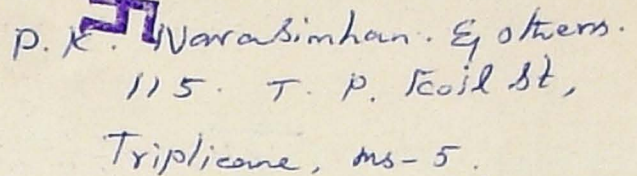 P. K. Narasimhan. & others.
115. T. P. Koil St,
Triplicane, ms-5.